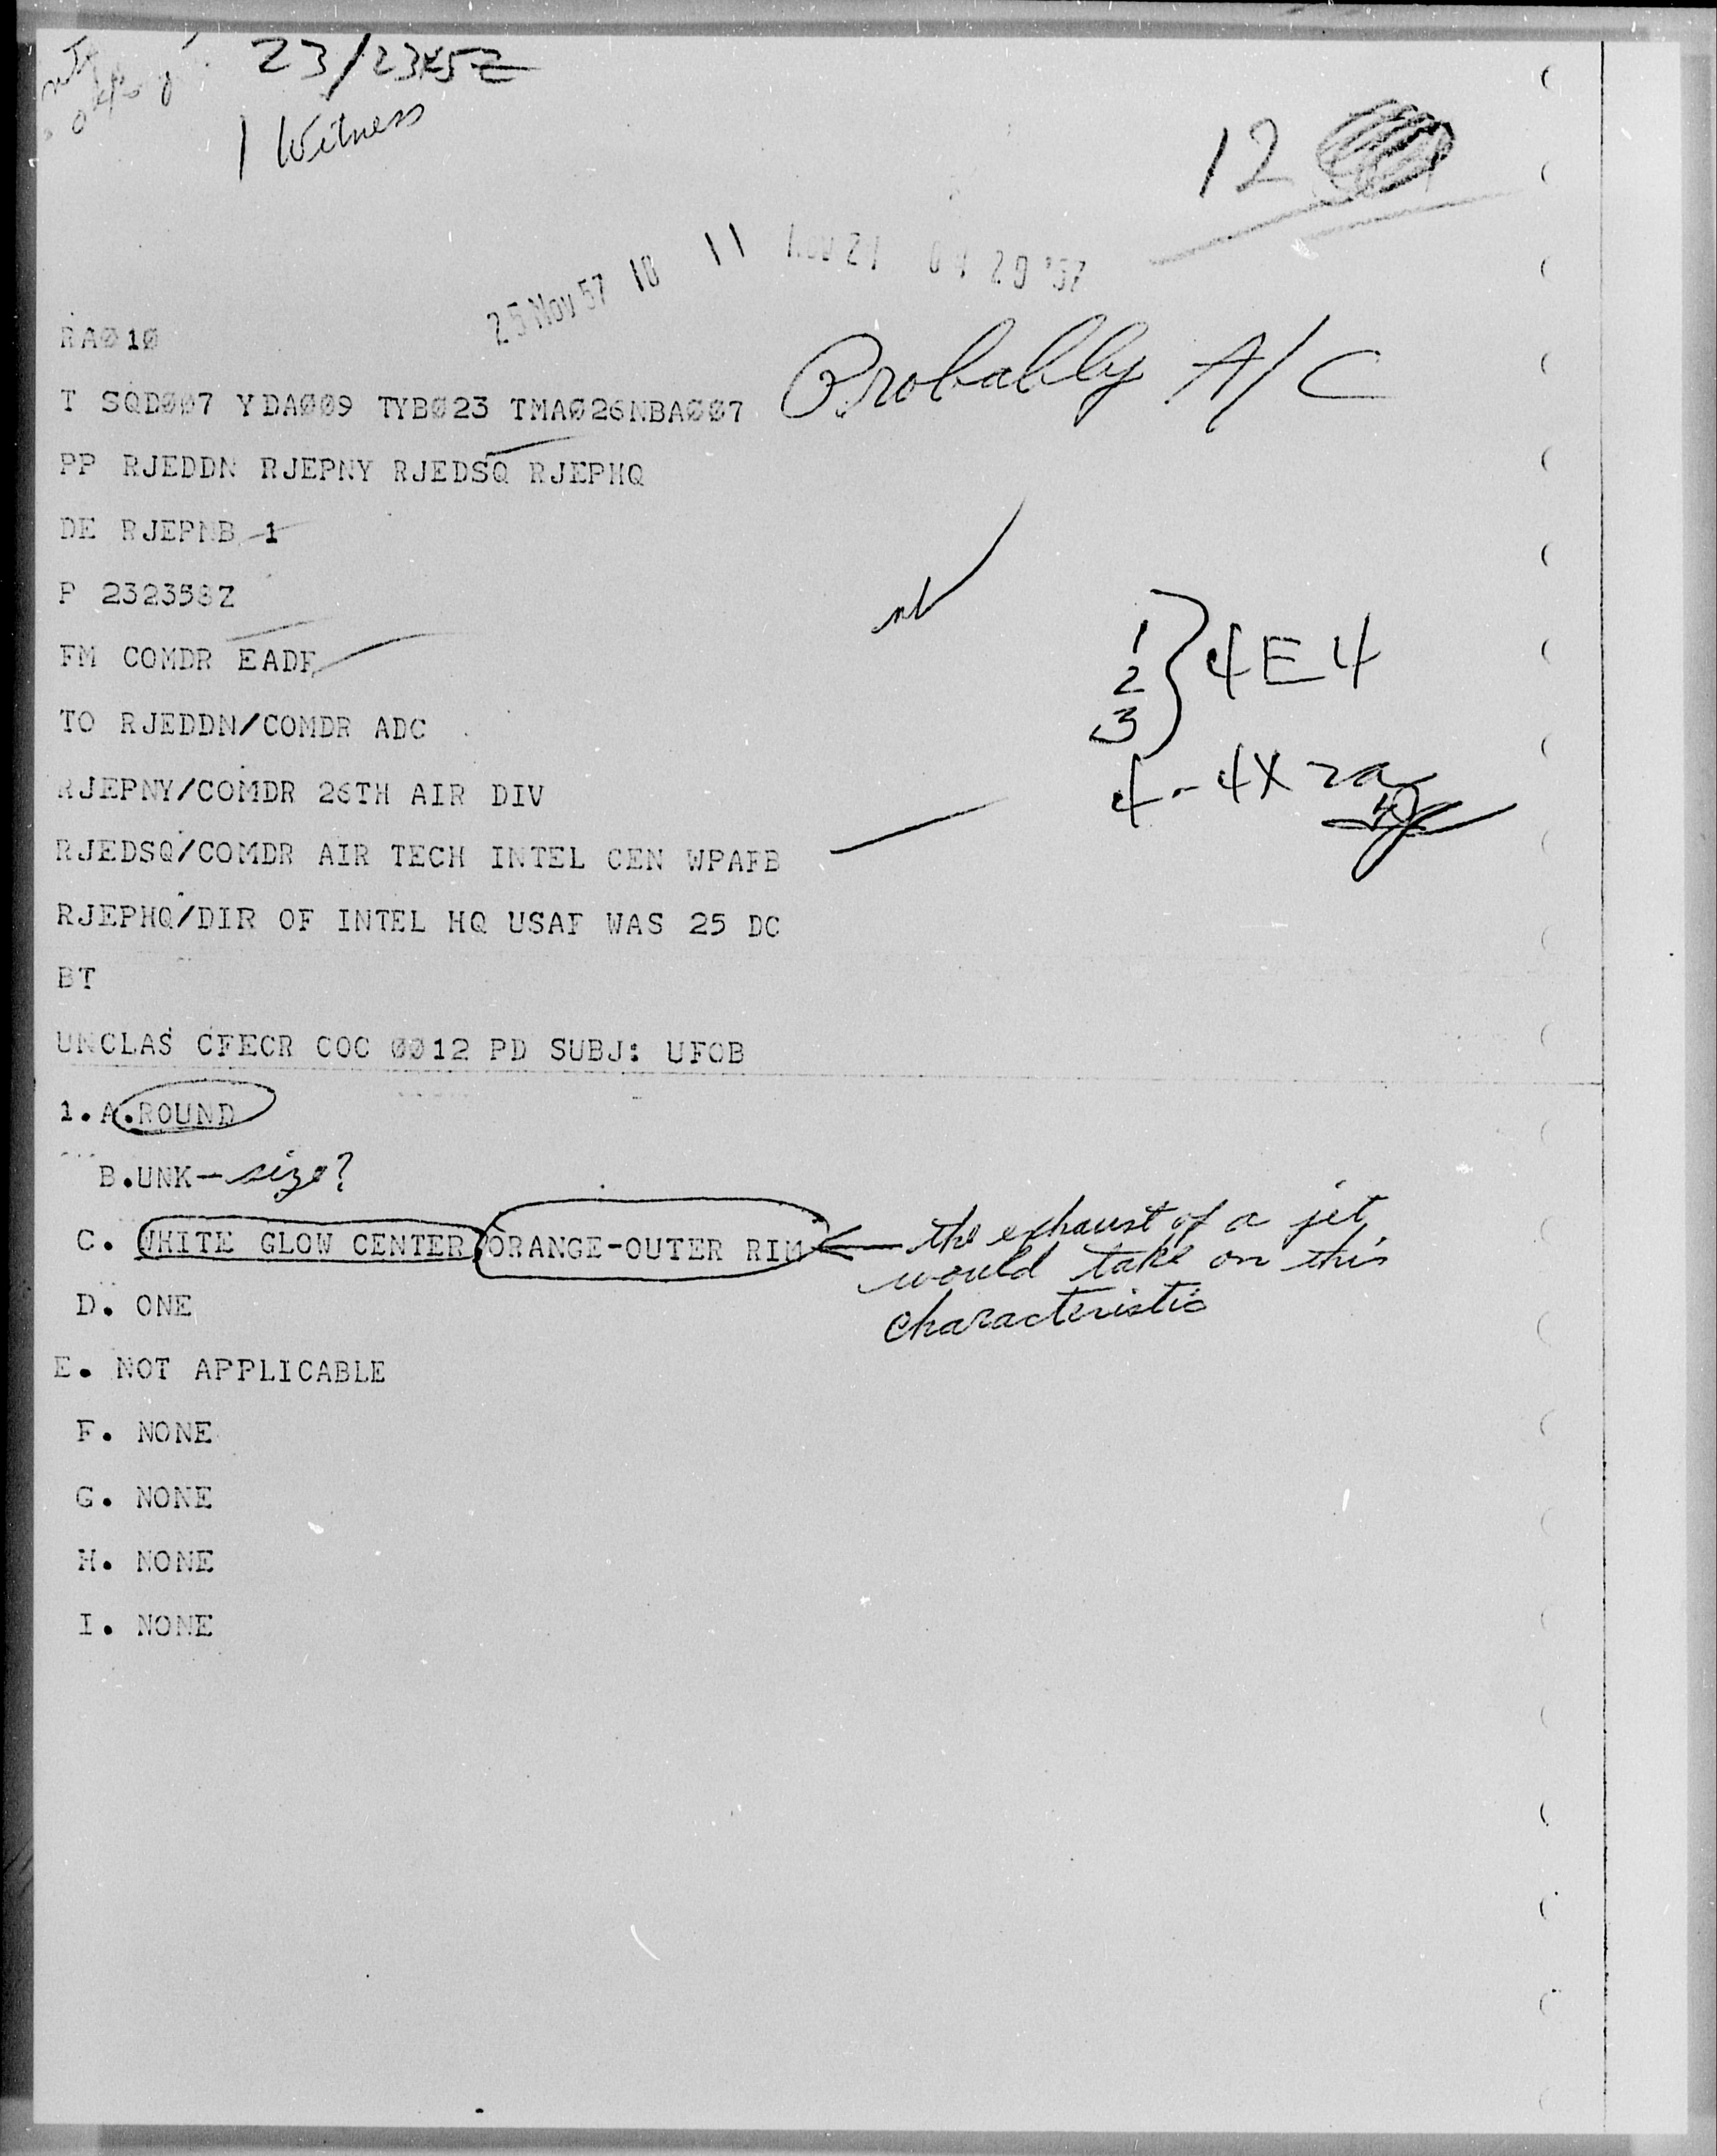 23/2345Z
1 Witness
12
25 Nov 57 10 11
NOV 21 04 20 '57
RAØ10
Probably A/C
T SQDØØ7 YDAØØ9 TYBØ23 TMAØ26NBAØØ7
PP RJEDDN RJEPNY RJEDSQ RJEPHQ
DE RJEPNB 1
P 232358Z
FM COMDR EADF
1
2 } 4E4
3
TO RJEDDN/COMDR ADC
4-4X2a
RJEPNY/COMDR 26TH AIR DIV
RJEDSQ/COMDR AIR TECH INTEL CEN WPAFB
RJEPHQ/DIR OF INTEL HQ USAF WAS 25 DC
BT
UNCLAS CFECR COC ØØ12 PD SUBJ: UFOB
1.A.ROUND
B.UNK-size?
C. WHITE GLOW CENTER ORANGE-OUTER RIM
the exhaust of a jet
would take on this
characteristic
D. ONE
E. NOT APPLICABLE
F. NONE
G. NONE
H. NONE
I. NONE